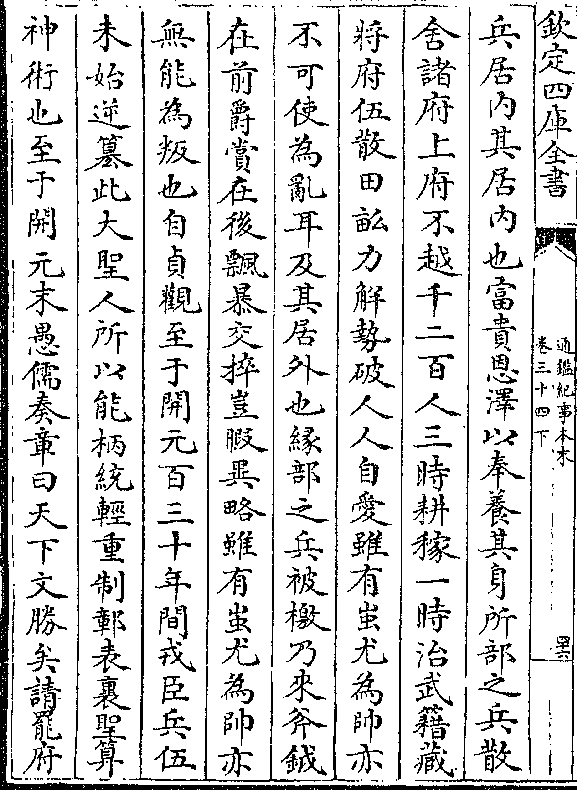 欽定四庫全書
通鑑紀事本末
卷三十四下
兵居內其居內也富貴恩澤以奉養其身所部之兵散
舍諸府上府不越千二百人三時耕稼一時治武籍藏
將府伍散田畝力解勢破人人自愛雖有蚩尤為帥亦
不可使為亂耳及其居外也緣部之兵被檄乃來斧鉞
在前爵賞在後飄暴交捽豈暇異略雖有蚩尤為帥亦
無能為叛也自貞觀至于開元百三十年間戎臣兵伍
未始逆篡此大聖人所以能柄統輕重制鄣表裏聖算
神術也至于開元末愚儒奏章曰天下文勝矣請罷府